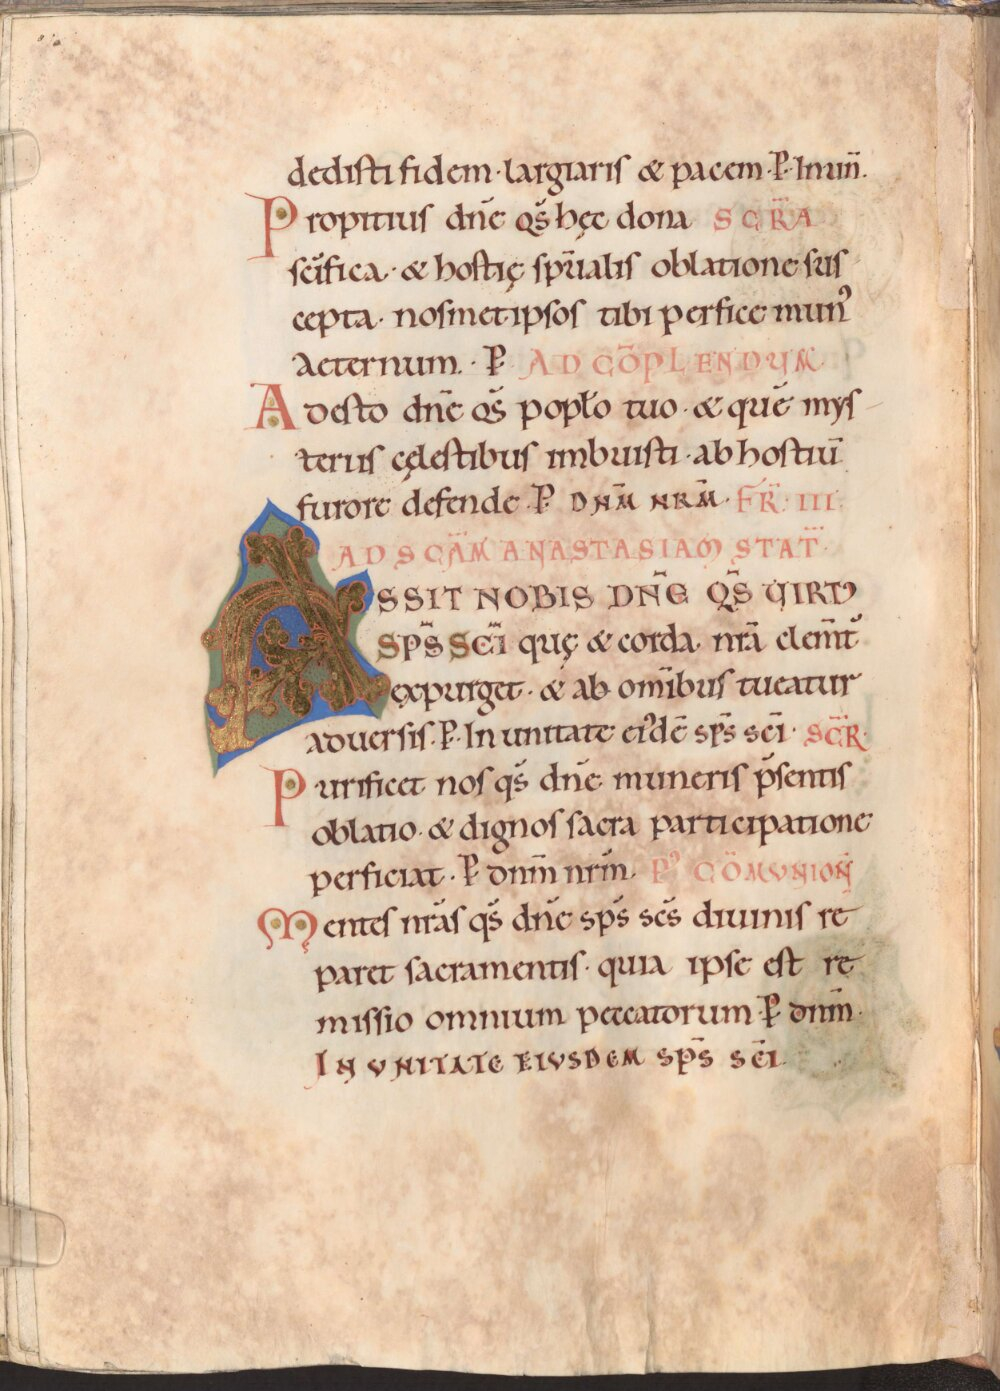 dedisti fidem · largiaris & pacem · P · In uni̅.
Propitius dn̅e qs̅ hęc dona SCR̅A
sc̅ifica · & hostię sp̅ualis oblatione sus
cepta · nosmetipsos tibi perfice mun᾽
aeternum · P AD CO̅PLENDUM
Adesto dn̅e qs̅ popl̅o tuo · & que̅ mys
teriis cęlestibus imbuisti · ab hostiu̅
furore defende P DNM̅ NRM̅ · FR̅ · III
AD SCA̅M ANASTASIAM STAT̅ ·
ASSIT NOBIS DN̅E QS̅ VIRT᾽
SPS̅ SCI̅ quę & corda nr̅a clem̅t᾽
expurget · & ab om̅ibus tueatur
adversis · P · In unitate ei᾽de̅ sps̅ sc̅i · SCR̅
Purificet nos qs̅ dn̅e muneris p̅sentis
oblatio · & dignos sacra participatione
perficiat · P dnm̅ nrm̅ · P᾽ CO̅MUNION̅
Mentes nr̅as qs̅ dn̅e sps̅ sc̅s divinis re
paret sacramentis · quia ipse est re
missio omnium peccatorum P dnm̅ ·
IN UNITATE EIUSDEM SPS̅ SCI̅